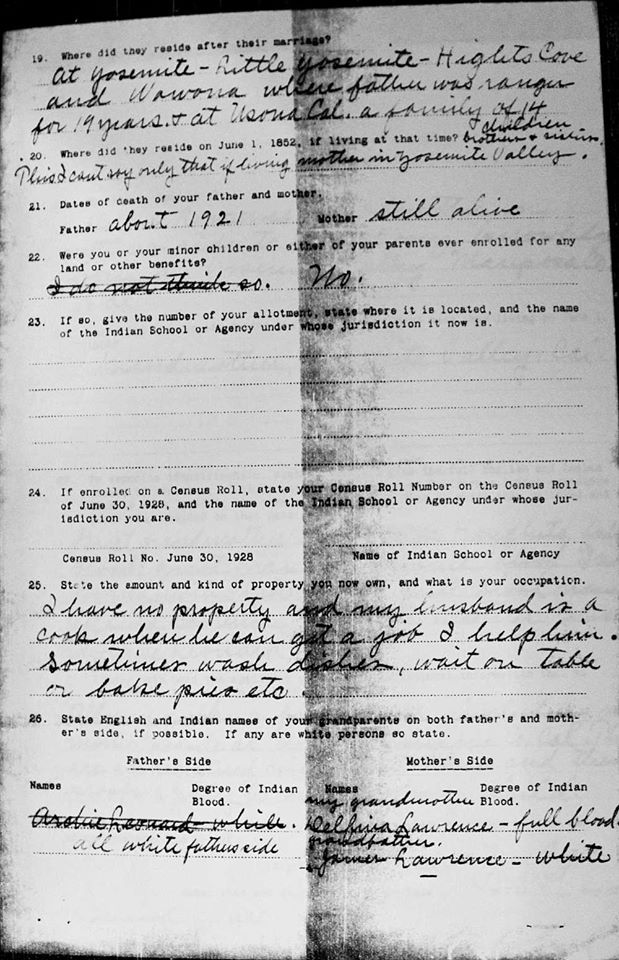 19. Where did they reside after their marriage?
At Yosemite - Little Yosemite - Higlits Cove
and Wawona where father was ranger
for 19 years. & at Usona Cal. a family of 14
children
20. Where did they reside on June 1, 1852, if living at that time? brothers & sisters.
I cant say only that if living mother in Yosemite Valley.
21. Dates of death of your father and mother.
Father about 1921 Mother still alive
22. Were you or your minor children or either of your parents ever enrolled for any
land or other benefits?
I do not think so. No.
23. If so, give the number of your allotment, state where it is located, and the name
of the Indian School or Agency under whose jurisdiction it now is.
24. If enrolled on a Census Roll, state your Census Roll Number on the Census Roll
of June 30, 1928, and the name of the Indian School or Agency under whose jur-
isdiction you are.
Census Roll No. June 30, 1928 Name of Indian School or Agency
25. State the amount and kind of property you now own, and what is your occupation.
I have no property and my husband is a
cook when he can get a job I help him.
Sometimes wash dishes, wait on table
or bake pies etc.
26. State English and Indian names of your grandparents on both father's and moth-
er's side, if possible. If any are white persons so state.
Father's Side Mother's Side
Names Degree of Indian Blood. Names Degree of Indian Blood.
my grandmother
Archie Leonard - white. Delfina Lawrence - full blood
grandfather.
all white fathers side James Lawrence - white